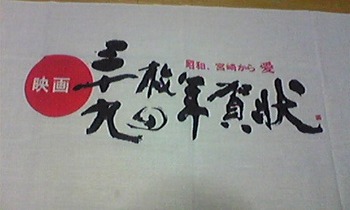 昭和、宮崎から 愛
映画
三十九枚の年賀状